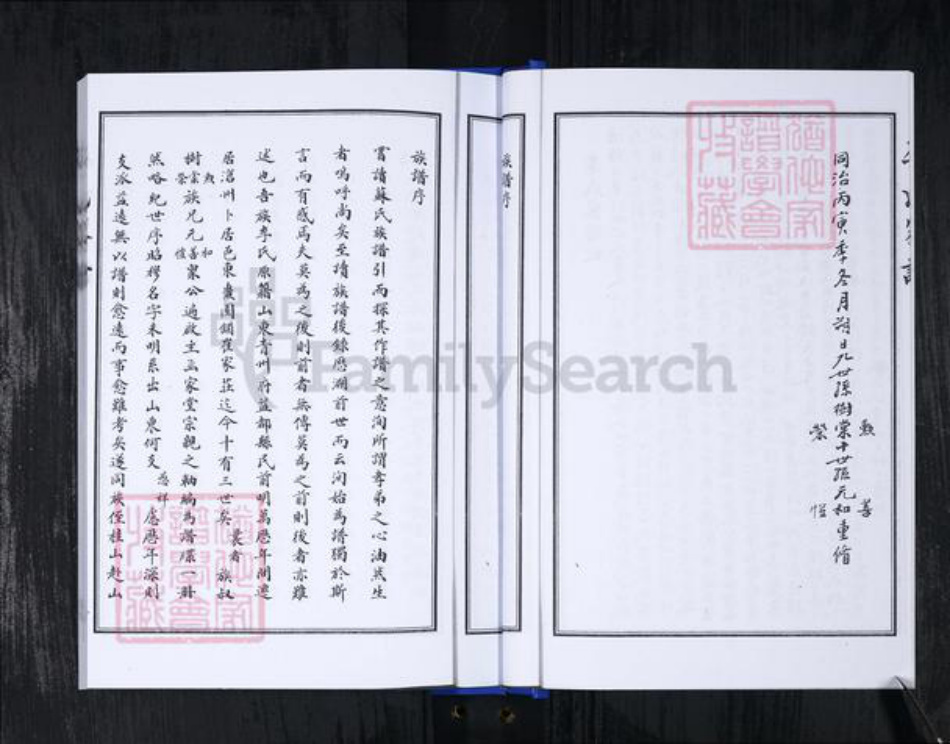 同治丙寅季冬月朔日九世孫樹棠十世孫元和重脩
勲
榮
善
愷
族譜序
族譜序
嘗讀蘇氏族譜引而探其作譜之意洵所謂孝弟之心油然生
者嗚呼尚矣至讀族譜後錄歷溯前世而云洵始為譜獨於斯
言而有感焉夫莫為之後則前者無傳莫為之前則後者亦難
述也吾族李氏原籍山東青州府益都縣民前明萬歷年間遷
居滄州卜居邑東南鎖崔家莊迄今十有三世矣曩者族叔
樹棠勲榮族兄元和善愷衆公遍啟主画家堂宗親之軸編為譜牒一冊
然略紀世序昭穆名字未明系出山東何支慈祥慮歷年深則
支派益遠無以譜則愈遠而事愈難考矣遂同族侄桂山赴山
猶他家譜學會收藏
猶他家譜學會收藏
FamilySearch